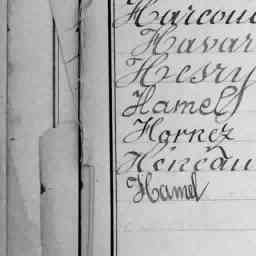 Harcou
Havar
Hesry
Hamel
Hornez
Héneau
Hamel